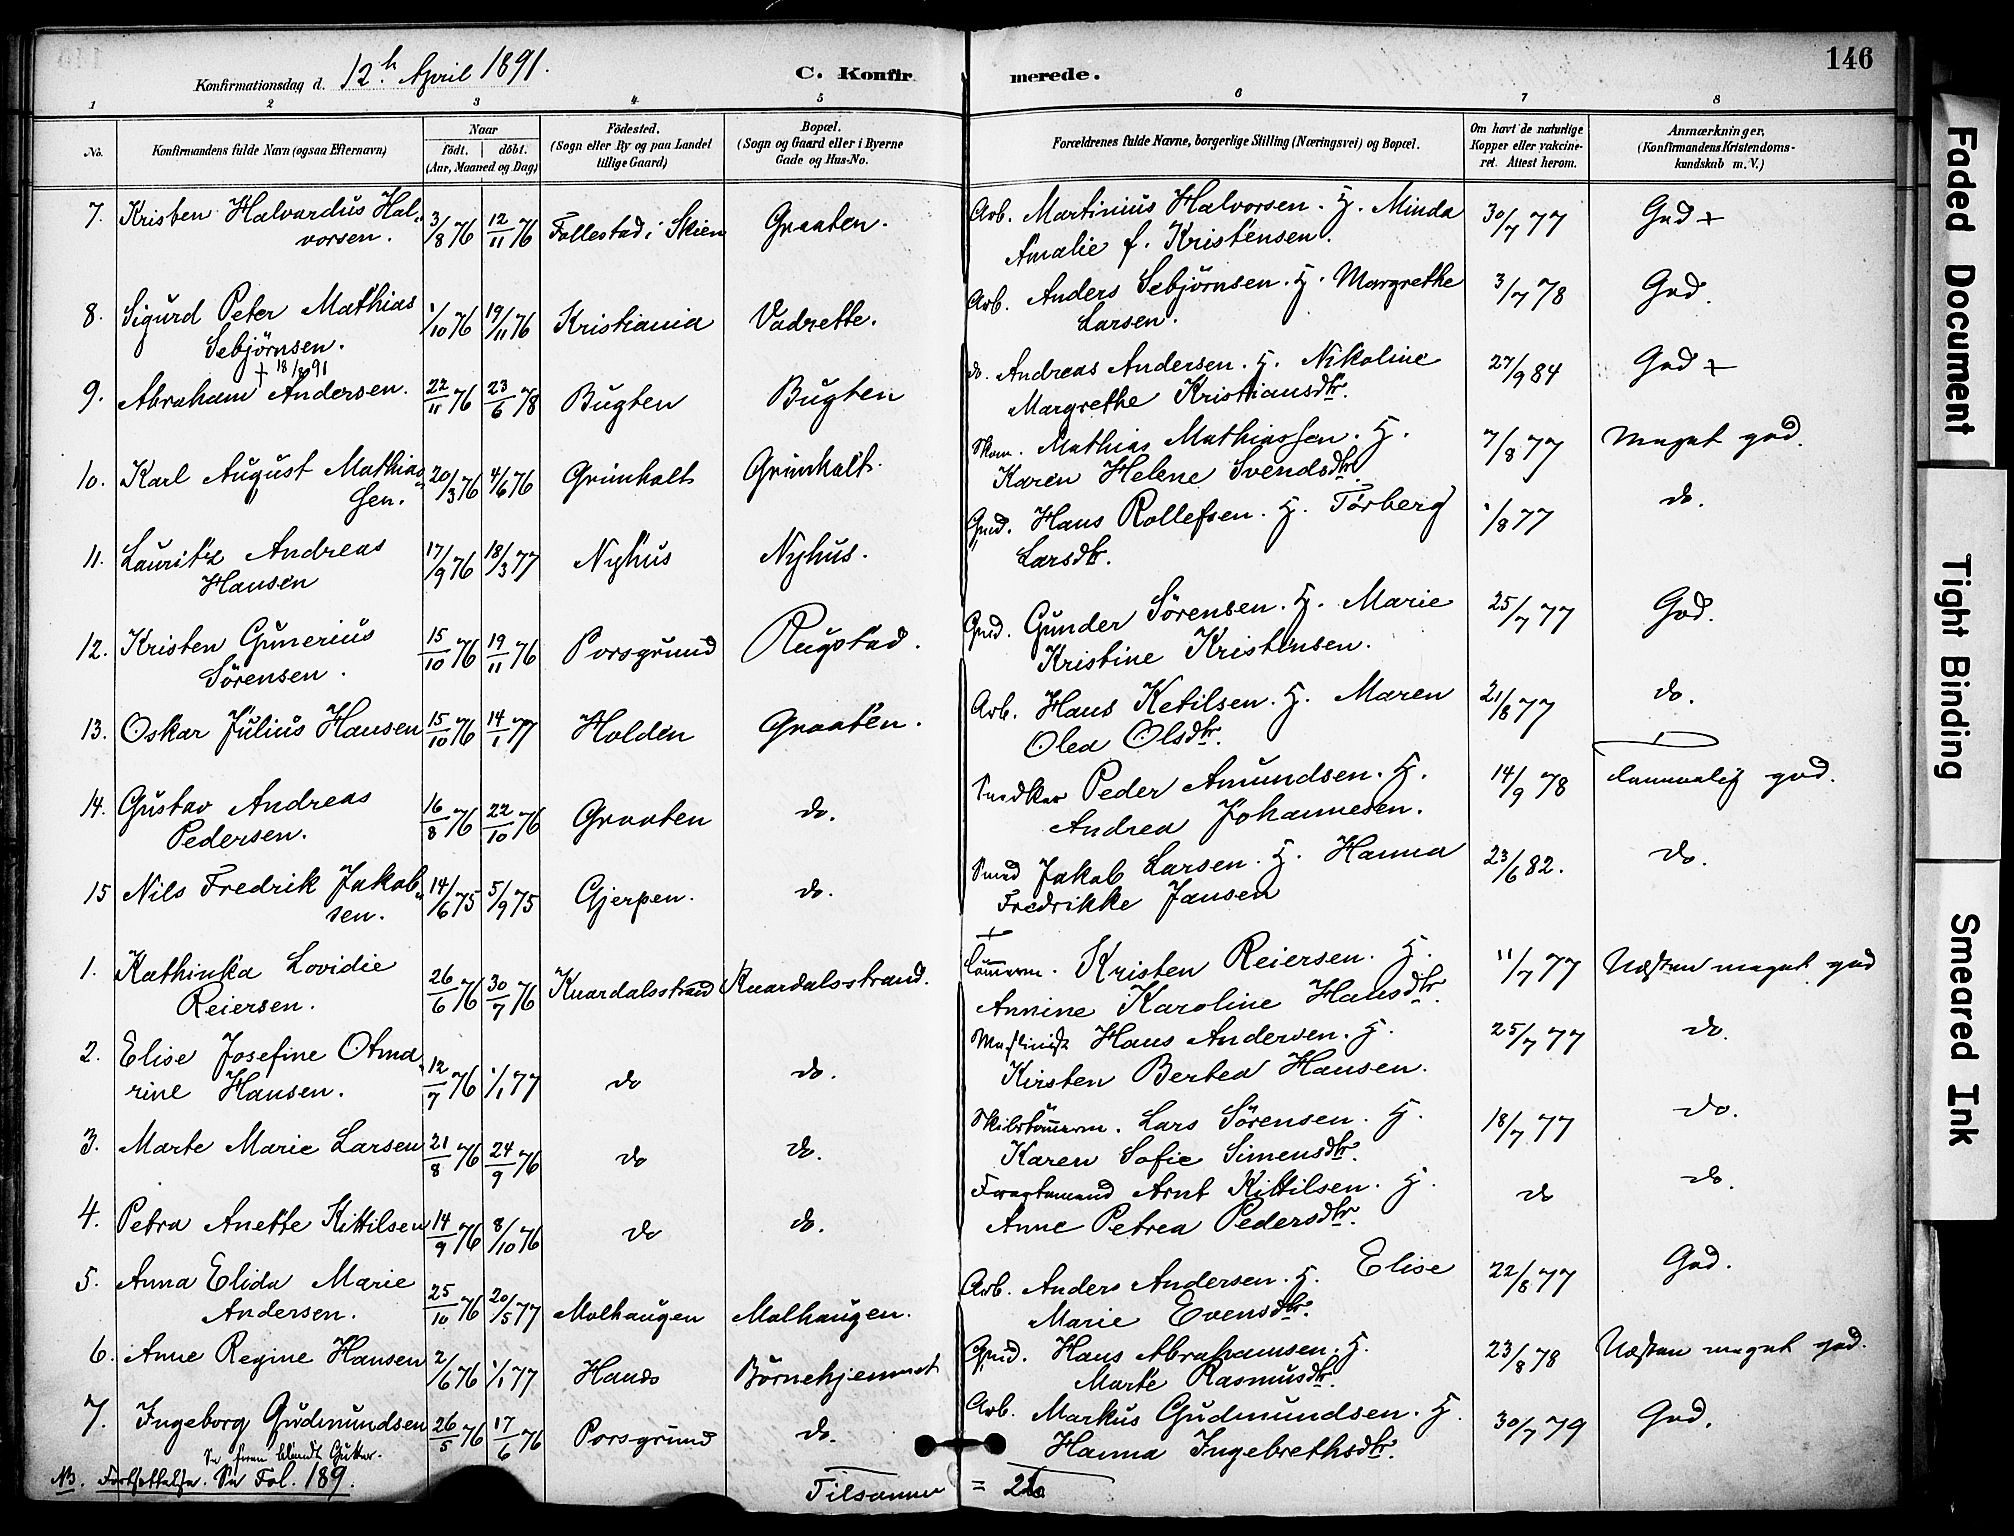 146
Konfirmationsdag d. 12th April 1891.
C. Konfirmerede.
1 2 3 4 5 6 7 8
No.
Konfirmandens fulde Navn (ogsaa Efternavn)
Naar
födt. döbt.
(Aar, Maaned og Dag)
Födested.
(Sogn eller By og paa Landet
tillige Gaard)
Bopæl.
(Sogn og Gaard eller i Byerne
Gade og Hus-No.
Forældrenes fulde Navne, borgerlige Stilling (Næringsvei) og Bopæl.
Om havt de naturlige
Kopper eller vakcine-
ret. Attest herom.
Anmærkninger,
(Konfirmandens Kristendoms-
kundskab m. V.)
7. Kristen Halvardus Hal- 3/8 76 12/11 76 Follestad i Skien Graaten. Arb. Martinius Halvorsen. H. Minda 30/7 77 God +
vorsen. Amalie f. Kristensen.
8. Sigurd Peter Mathias 1/10 76 19/11 76 Kristiania Vadrette. Arb. Anders Sebjörnsen. H. Margrethe 3/7 78 God.
Sebjörnsen. Larsen.
+ 18/8 91
9. Abraham Andersen. 22/11 76 23/6 78 Bugten Bugten do. Andreas Andersen. H. Nikoline 27/9 84 God +
Margrethe Kristiansdtr.
10. Karl August Mathias- 20/3 76 4/6 76 Grimholt Grimholt. Skom. Mathias Mathiassen. H. 7/8 77 Meget god.
sen. Karen Helene Svendsdtr.
11. Lauritz Andreas 17/9 76 18/3 77 Nyhus Nyhus. Gmd. Hans Rollefsen. H. Törberg 1/8 77 do.
Hansen Larsdtr.
12. Kristen Gunerius 15/10 76 19/11 76 Porsgrund Rugstad. Gmd. Gunder Sörensen. H. Marie 25/7 77 God.
Sörensen. Kristine Kristensen.
13. Oskar Julius Hansen 15/10 76 14/1 77 Holden Graaten. Arb. Hans Ketilsen. H. Maren 21/8 77 do.
Olea Olsdtr.
14. Gustav Andreas 16/8 76 22/10 76 Graaten do. Snedker Peder Amundsen. H. 14/9 78 temmelig god.
Pedersen. Andrea Johannesen.
15 Nils Fredrik Jakob- 14/6 75 5/9 75 Gjerpen. do. Smed Jakob Larsen. H. Hanna 23/6 82. do.
sen. Fredrikke Jansen
+
1. Kathinka Lovidie 26/6 76 30/7 76 Knardalsstrand Knardalsstrand. Tömmerm. Kristen Reiersen. H. 11/7 77 Næsten meget god
Reiersen. Annine Karoline Hansdtr.
2. Elise Josefine Otma- 12/7 76 1/1 77 do do. Maskinist Hans Andersen. H. 25/7 77 do.
rine Hansen. Kirsten Bertea Hansen.
3. Marte Marie Larsen 21/8 76 24/9 76 do do. Skibstömmerm. Lars Sörensen. H. 18/7 77 do.
Karen Sofie Simensdtr.
4. Petra Anette Kittilsen 14/9 76 8/10 76 do do. Fragtemand Arnt Kittilsen. H. do do.
Anne Petrea Pedersdtr.
5. Anna Elida Marie 25/10 76 20/5 77 Molhaugen Molhaugen. Arb. Anders Andersen. H. Elise 22/8 77 God.
Andersen. Marie Evensdtr.
6. Anne Regine Hansen 2/6 76 1/1 77 Hauds Börnehjemmet Gmd. Hans Abrahamsen. H. 23/8 78 Næsten meget god.
Marte Rasmusdtr.
7. Ingeborg Gudmundsen 26/5 76 17/6 76 Porsgrund do. Arb. Markus Gudmundsen. H. 30/7 79 God.
Hanna Ingebrethsdtr.
Se foran blandt Gutter.
NB. Fortsættelse. Se Fol. 189. Tilsammen =
Faded Document
Tight Binding
Smeared Ink